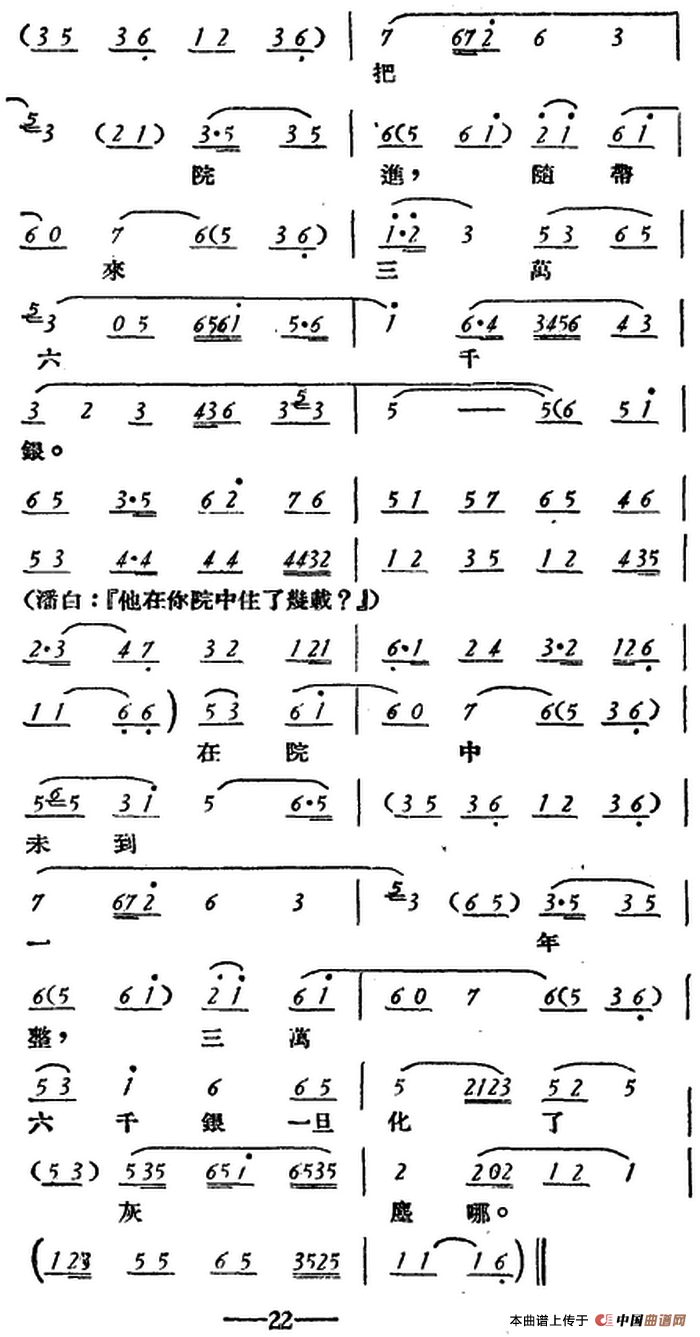 (35 36 12 36) | 7 672 6 3
把
53 (21) 3·5 35 | 6(5 61) 21 61
院 進, 隨 帶
60 7 6(5 36) | 1·2 3 53 65
來 三 萬
53 05 6561 5·6 | 1 6·4 3456 43
六 千
3 2 3 436 353 | 5 — 5(6 51
銀。
65 3·5 62 76 | 51 57 65 46
53 4·4 44 4432 | 12 35 12 435
(潘白:『他在你院中住了幾載?』)
2·3 47 32 121 | 6·1 24 3·2 126
11 66) 53 61 | 60 7 6(5 36)
在 院 中
565 31 5 6·5 | (35 36 12 36)
未 到
7 672 6 3 | 53 (65) 3·5 35
一 年
6(5 61) 21 61 | 60 7 6(5 36)
整, 三 萬
53 1 6 65 | 5 2123 52 5
六 千 銀 一旦 化 了
(53) 535 651 6535 | 2 202 12 1
灰 塵 哪。
(123 55 65 3525 | 11 16)
—22—
本曲谱上传于 中国曲谱网